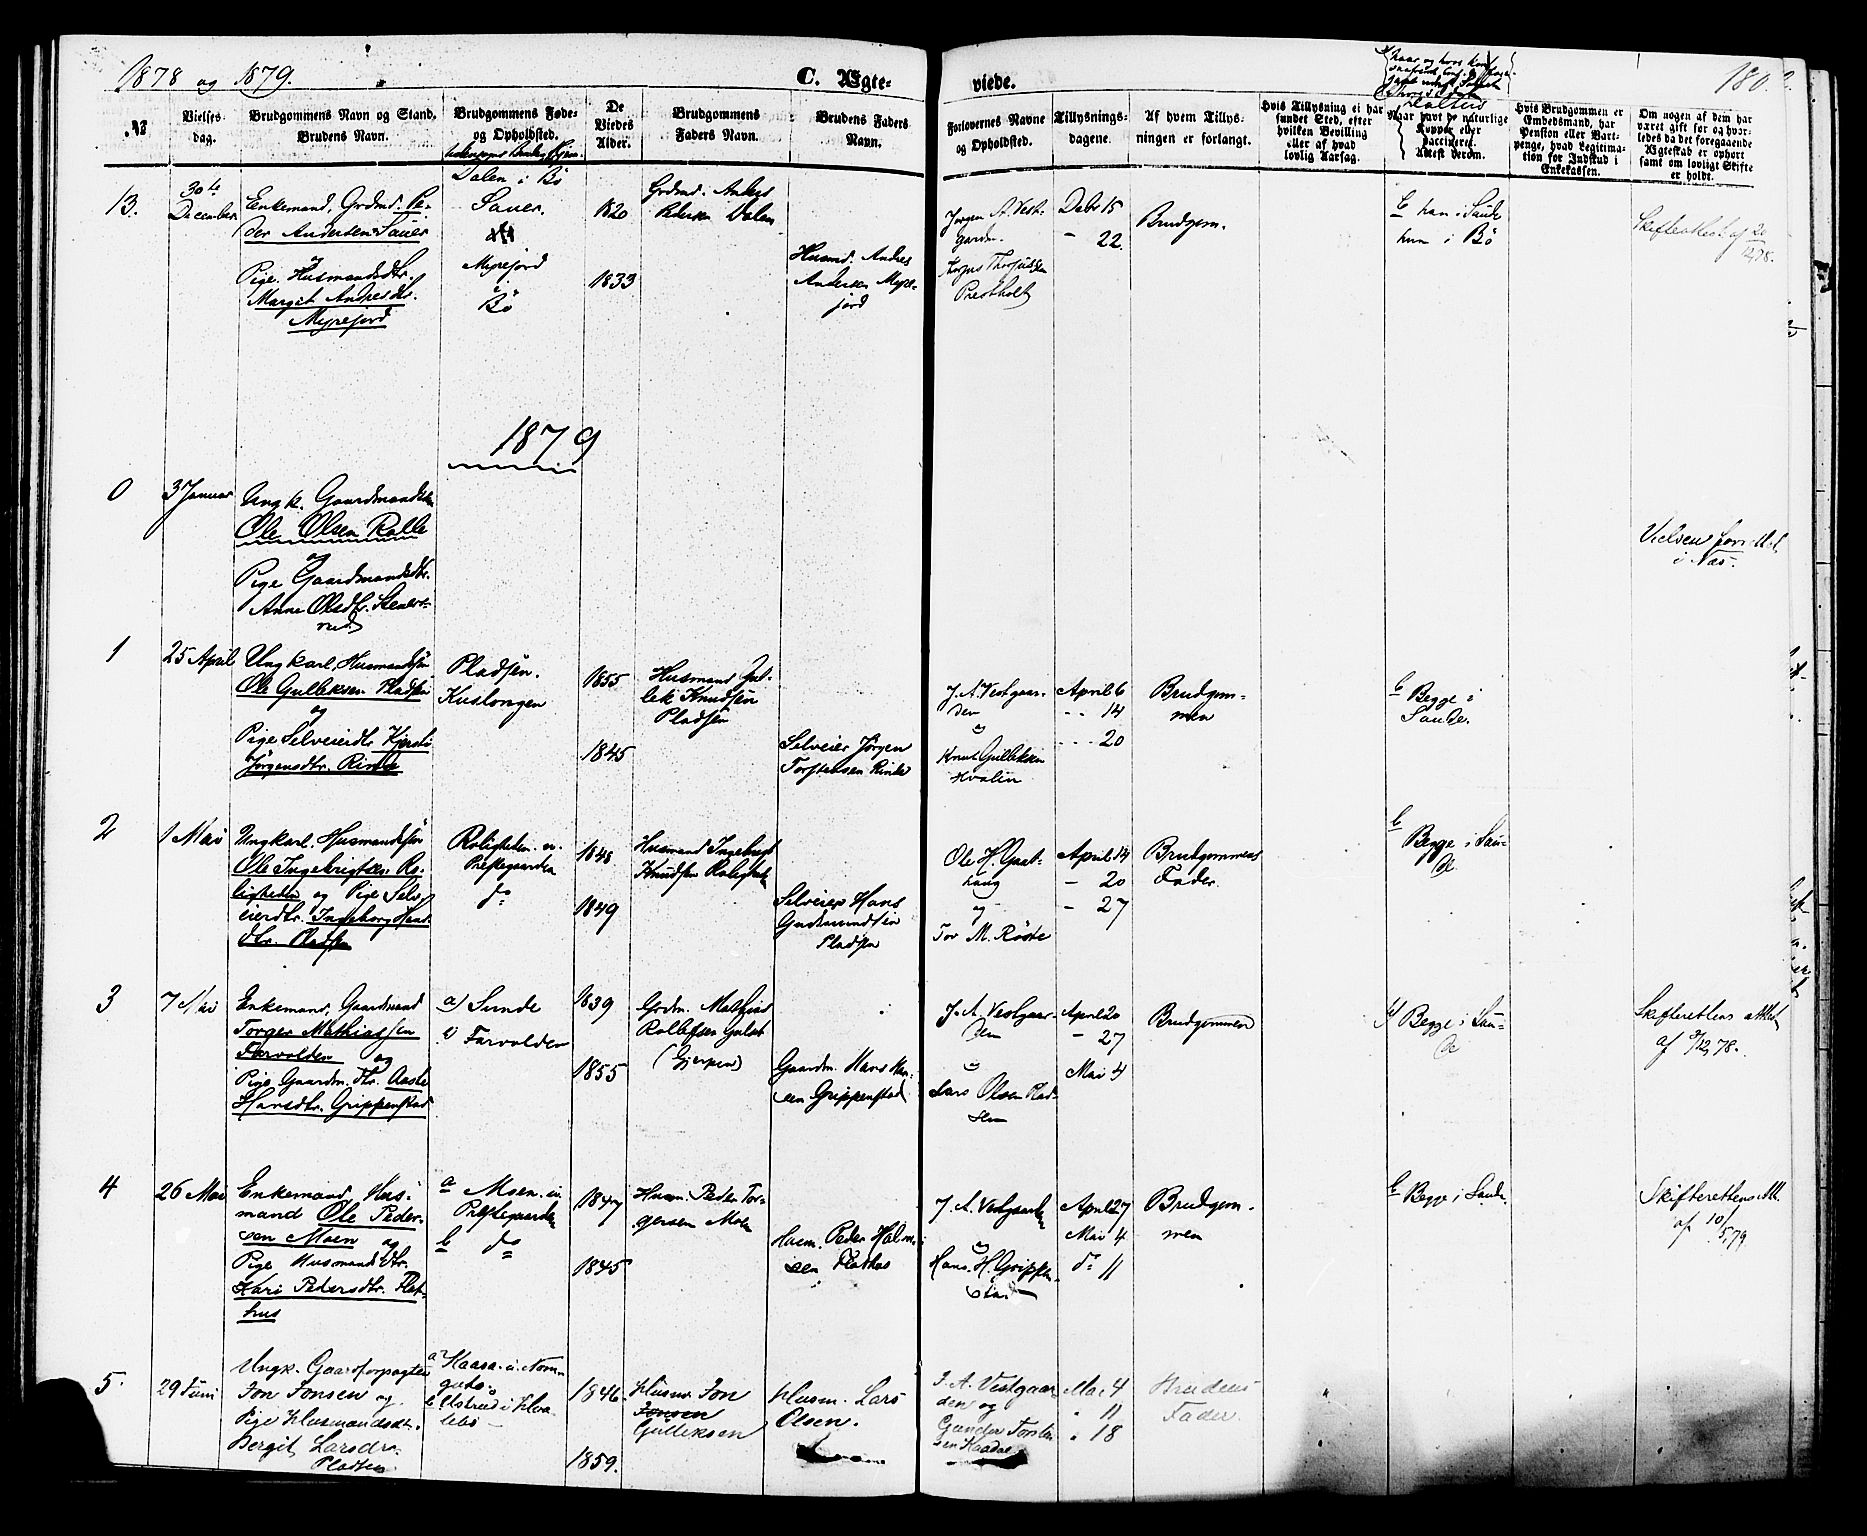 1878 og 1879.
C. Ægte-
viede.
180.
№
Vielses-
dag.
Brudgommens Navn og Stand,
Brudens Navn.
Brudgommens Føde-
og Opholdsted.
De
Viedes
Alder.
Brudgommens
Faders Navn.
Brudens Faders
Navn.
Forlovernes Navne
og Opholdsted.
Tillysnings-
dagene.
Af hvem Tillys-
ningen er forlangt.
Hvis Tillysning ei har
fundet Sted, efter
hvilken Bevilling
eller af hvad
lovlig Aarsag.
Naar havt de naturlige
Kopper eller
vaccineret.
Attest derom.
Hvis Brudgommen er
Embedsmand, har
Pension eller Vart-
penge, hvad Legitima-
tion for Indskud i
Enkekassen.
Om nogen af dem har
været gift før og hvor-
ledes da det foregaaende
Ægteskab er ophørt
samt om lovligt Skifte
er holdt.
13.
30te
December
Enkemand, Grdmd. Pe-
der Andersen Sauer
og
Pige. Husmandsdtr.
Margit Andresdtr.
Myrejord
Dalen i Bø
Sauer.
Myrejord
i
Bø
1820
1833
Grdmd. Anders
Pedersen Dalen
Husmd. Andres
Andersen Myre-
jord
Jørgen A. Vest-
gardn.
Prestholt
Debr 15
- 22.
Brudgom.
han i Saude
hun i Bø
Skifteattest af 20
12 78.
1879
0
3 Januar
Ungk. Gaardmands
Ole Olsen Kolle
og
Pige Gaardmandsdtr.
Anne Olsdtr. Stener-
rud
Vielsen
i Næs.
1
25 April
Ungkarl, Husmandssøn
Ole Gulleksen Pladsen
og
Pige Selveierdtr Kjersti
Jørgensdtr. Rinde
Pladsen.
Kuslongen
1855
1845
Husmand Gul-
lek Knudsen
Pladsen
Selveier Jørgen
Torstensen Rinde
J. A. Vestgaar-
den
og
Knut Gulleksen
Hvalin
April 6
- - 14
- - - 20
Brudgom-
men
Begge i
Saude.
2
1 Mai
Ungkarl. Husmandssøn
Ole Ingebrigtsen Ro-
ligheden og Pige Selv-
eierdtr. Ingeborg Hans-
dtr. Pladsen
Roligheden u.
Prestegaarden
do
1848
1849
Husmand Ingebrigt
Knudsen Roligheden
Selveier Hans
Gudmundsen
Pladsen
Ole H. Gaat-
haug
og
Tor M. Røste
April 14
- 20
- 27
Brudgommens
Fader.
Begge i Sau-
de
3
7 Mai
Enkemand, Gaardmand
Torger Mathiassen
Farvolden og
Pige Gaardm. dtr. Aaste
Hansdtr. Grippenstad
a) Sunde
b) Farvolden
1839
1855
Grdm. Mathias
Rollefsen Gulset
(Gjerpen)
Gaardm. Hans Han-
sen Grippenstad
J. A. Vestgaar-
den
og
Lars Olsen
April 20
- 27
Mai 4
Brudgommen
Begge i Sau-
de
Skifterettens attest
af 3/12 78.
4
26 Mai
Enkemand, Hus-
mand Ole Peder-
sen Moen og
Pige Husmandsdtr.
Kari Pedersdtr. Flat-
hus
a Moen. u.
Prestegaarden
b do
1847
1845
Husm. Peder Tor-
gersen Moen
Husm. Peder
sen Flathus
J. A. Vestgaarden
og
Hans. H. Grippen-
stad
April 27
Mai 4
do 11
Brudgom-
men
Begge i Saude.
Skifterettens Att.
af 10/5 79
5.
29 Juni
Ungk. Gaardforpagter
Jon Jonsen og
Pige Husmandsdtr.
Bergit Larsdr.
Pladsen
a Haasa. u. Nom-
1846.
1859.
Husm. Jon
Jonsen
Gulleksen
Husm. Lars
Olsen.
J. A. Vestgaar-
den og
Gunder Torsten-
sen Haadal
Mai 4
" 11
" 18
Brudens
Fader.